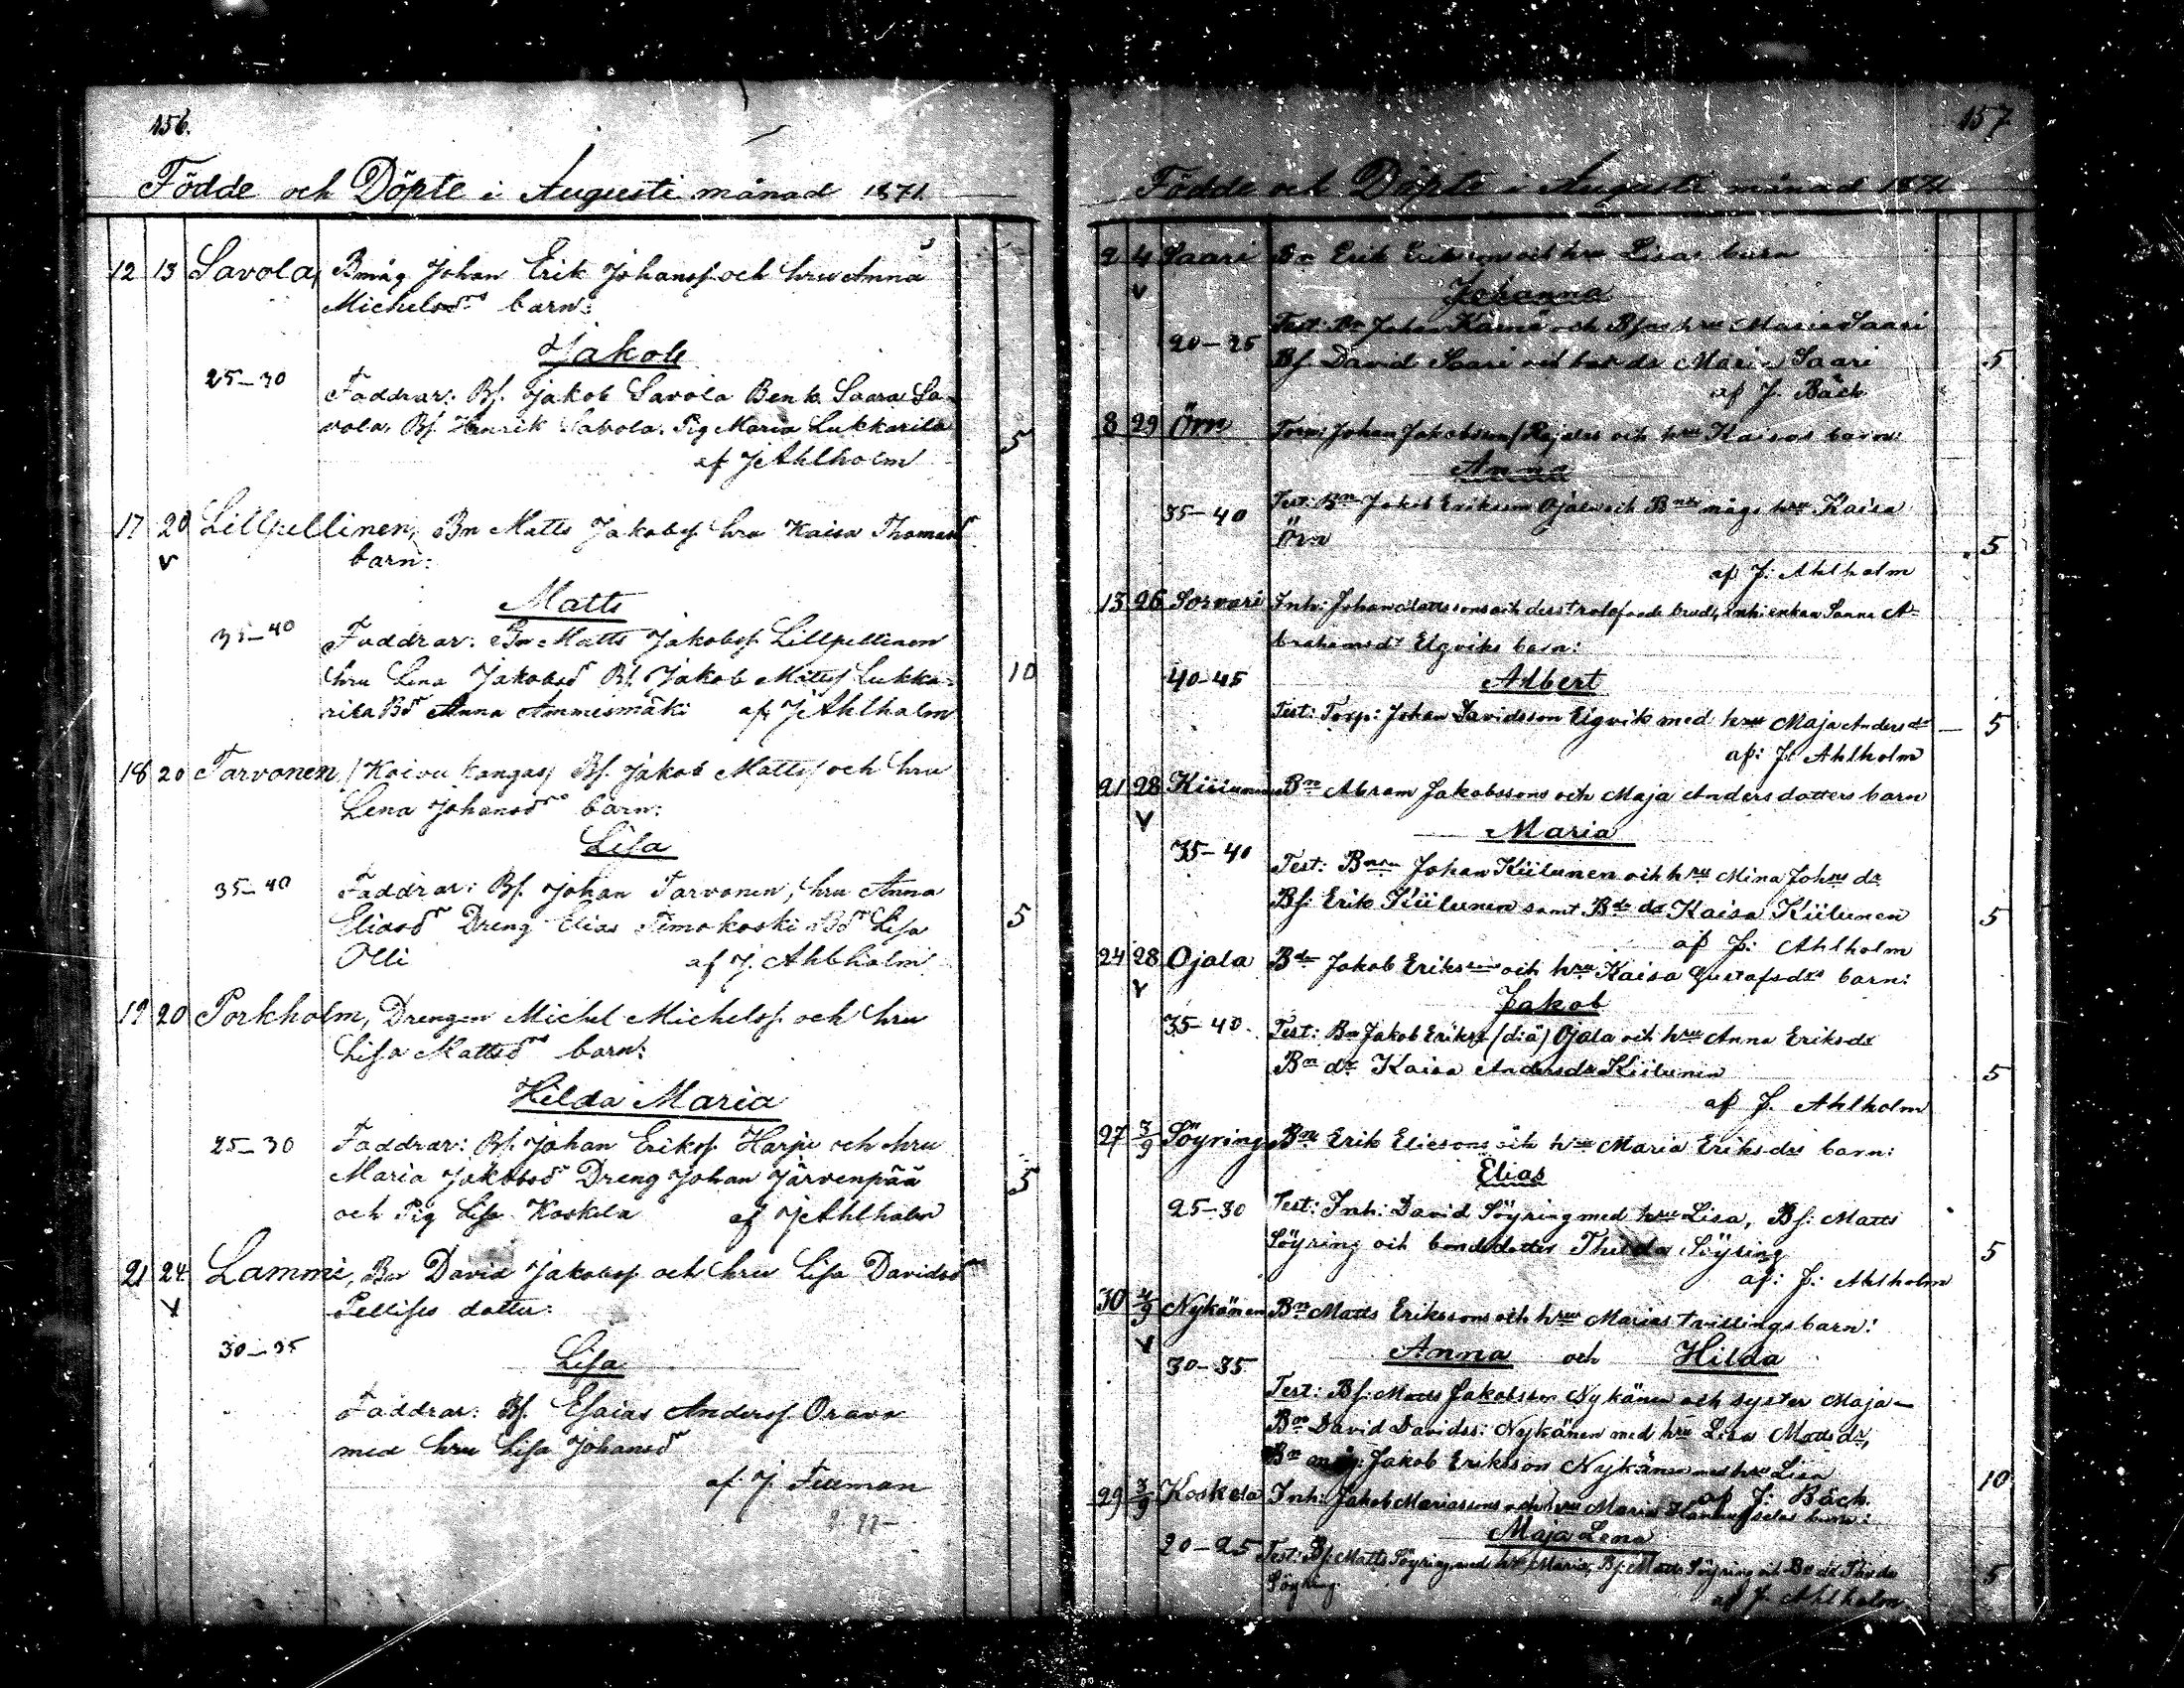 156.
Födde och Döpte i Augusti månad 1871.
12 13 Savola, Bmåg Johan Erik Johanss. och hru Anna
Michelsdrs barn:
Jakob
25–30
Faddrar: Bs. Jakob Savola Benk. Saara Sa-
vola, Bs. Henrik Savola. Pig Maria Lukkarila
5
af J Ahlholm
17 20 Lillpellinen, Bn Matts Jakobss. hru Kaisa Thomasd
v barn:
Matts
35–40 Faddrar: Bn Matts Jakobss. Lillpellinen
hru Lena Jakobsd Bs. Jakob Matts. Lukka- 10
rila Bd Anna Ammesmäki af J Ahlholm
18 20 Tarvonen, /Koivukangas/ Bs. Jakob Matts. och hru
Lena Johansdrs barn:
Lisa
35–40 Faddrar: Bs. Johan Tarvonen, hru Anna
Eliasdr Dreng Elias Timokoski Bdr Lisa 5
Olli af J. Ahlholm
19 20 Porkholm, Drengen Michel Michelss. och hru
Lisa Mattsdrs barn:
Hilda Maria
25–30 Faddrar: Bs. Johan Erikss. Harju och hru
Maria Jakobsdr Dreng Johan Järvenpää 5
och Pig Lisa Koskela af J Ahlholm
21 24 Lammi, Bn David Jakobss. och hru Lisa Davidsdrs
v Pellises dotter:
30–35 Lisa
Faddrar: Bs. Esaias Anderss. Orava
med hru Lisa Johansdr
af J. Tuman
157
Födde och Döpte i Augusti månad 1871
2 4 Saari Bn Erik Erikssons och hru Lisas barn
v Johanna
Test: Bn Johan och Bsas hru Maria Saari
20–25 Bs. David Saari och bondedr Maria Saari 5
af J. Bäck
8 29 Örn Torp: Johan Jakobsson /Rajalas och hru Kaisas barn:
Anna
35–40 Test: Bn Jakob Eriksson Ojala och Bns mågs hru Kaisa
Örn 5
af J. Ahlholm
13 26 Sorvari Inh: Johan Mattssons och dess trolofvade brud, inh: enkan Saara A-
brahamsdr Elgviks barn:
40–45 Albert
Test: Torp: Johan Davidsson Elgvik med hru Maja Andersdr 5
af: J. Ahlholm
21 28 Kiilunen Bn Abram Jakobssons och Maja Andersdotters barn
v Maria
35–40 Test: Bn Johan Kiilunen och hru Mina Johns dr
Bs: Erik Kiilunen samt Bde dr Kaisa Kiilunen 5
af J: Ahlholm
24 28 Ojala Bde Jakob Erikssons och hru Kaisa Gustafsdrs barn:
v Jakob
35–40 Test: Bn Jakob Erikss (d:ä) Ojala och hru Anna Eriksdr
Bn dr Kaisa Andersdr Kiilunen 5
af J. Ahlholm
27 3/9 Söyring Bn Erik Eliesons och hru Maria Eriksdrs barn:
Elias
25–30 Test: Inh: David Söyring med hru Lisa, Bs: Matts
Söyring och bondedotter Thilda Söyring 5
af: J: Ahlholm
30 4/9 Nykänen Bn Matts Erikssons och hru Marias tvillingsbarn:
v Anna och Hilda
30–35
Test: Bs: Matts Jakobsson Nykänen och syster Maja –
Bn David Davidss: Nykänen med hru Lisa Mattsdr,
Bn måg: Jakob Eriksson Nykänen med hru Lisa 10
af J: Bäck.
29 3/9 Koskela Inh: Jakob Mariassons och hru Maria barn:
Maja Lena
20–25 Test: Bs. Matts Söyring med hru Maria, Bs: Matts Söyring och Bn dr Thilda
Söyring 5
af J. Ahlholm